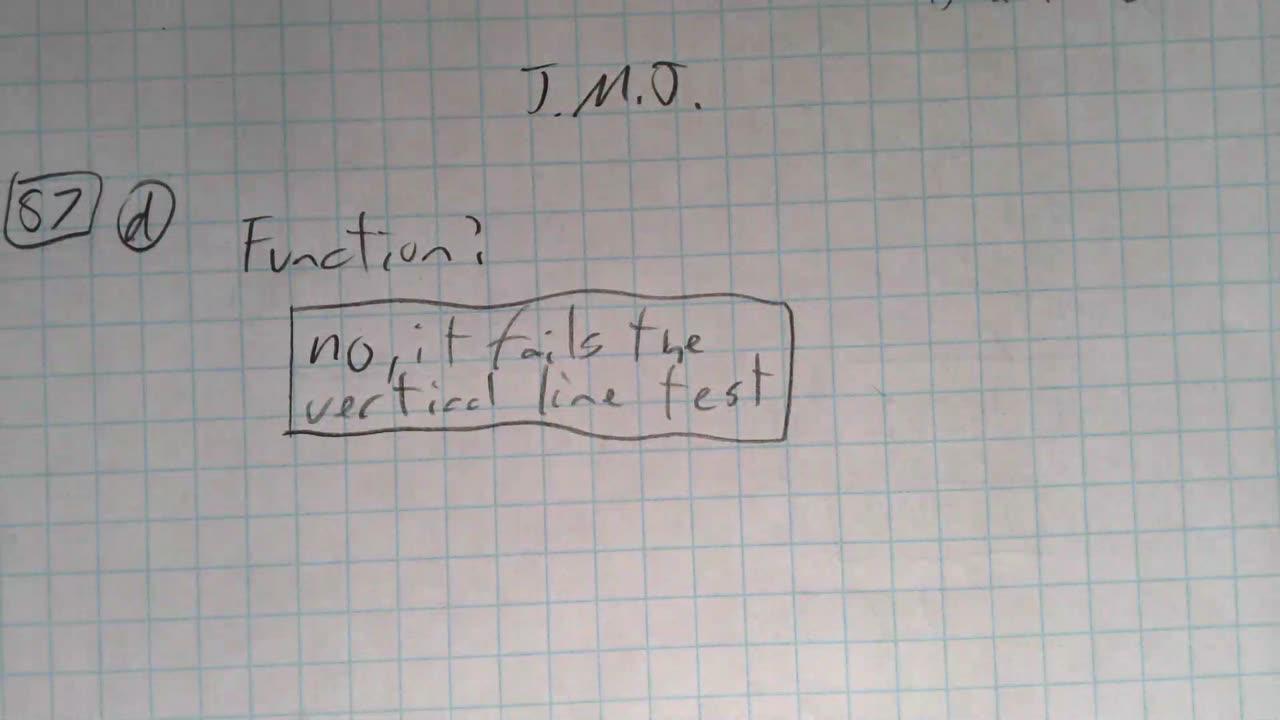 J.M.J.
87 d Function?
no, it fails the
vertical line test